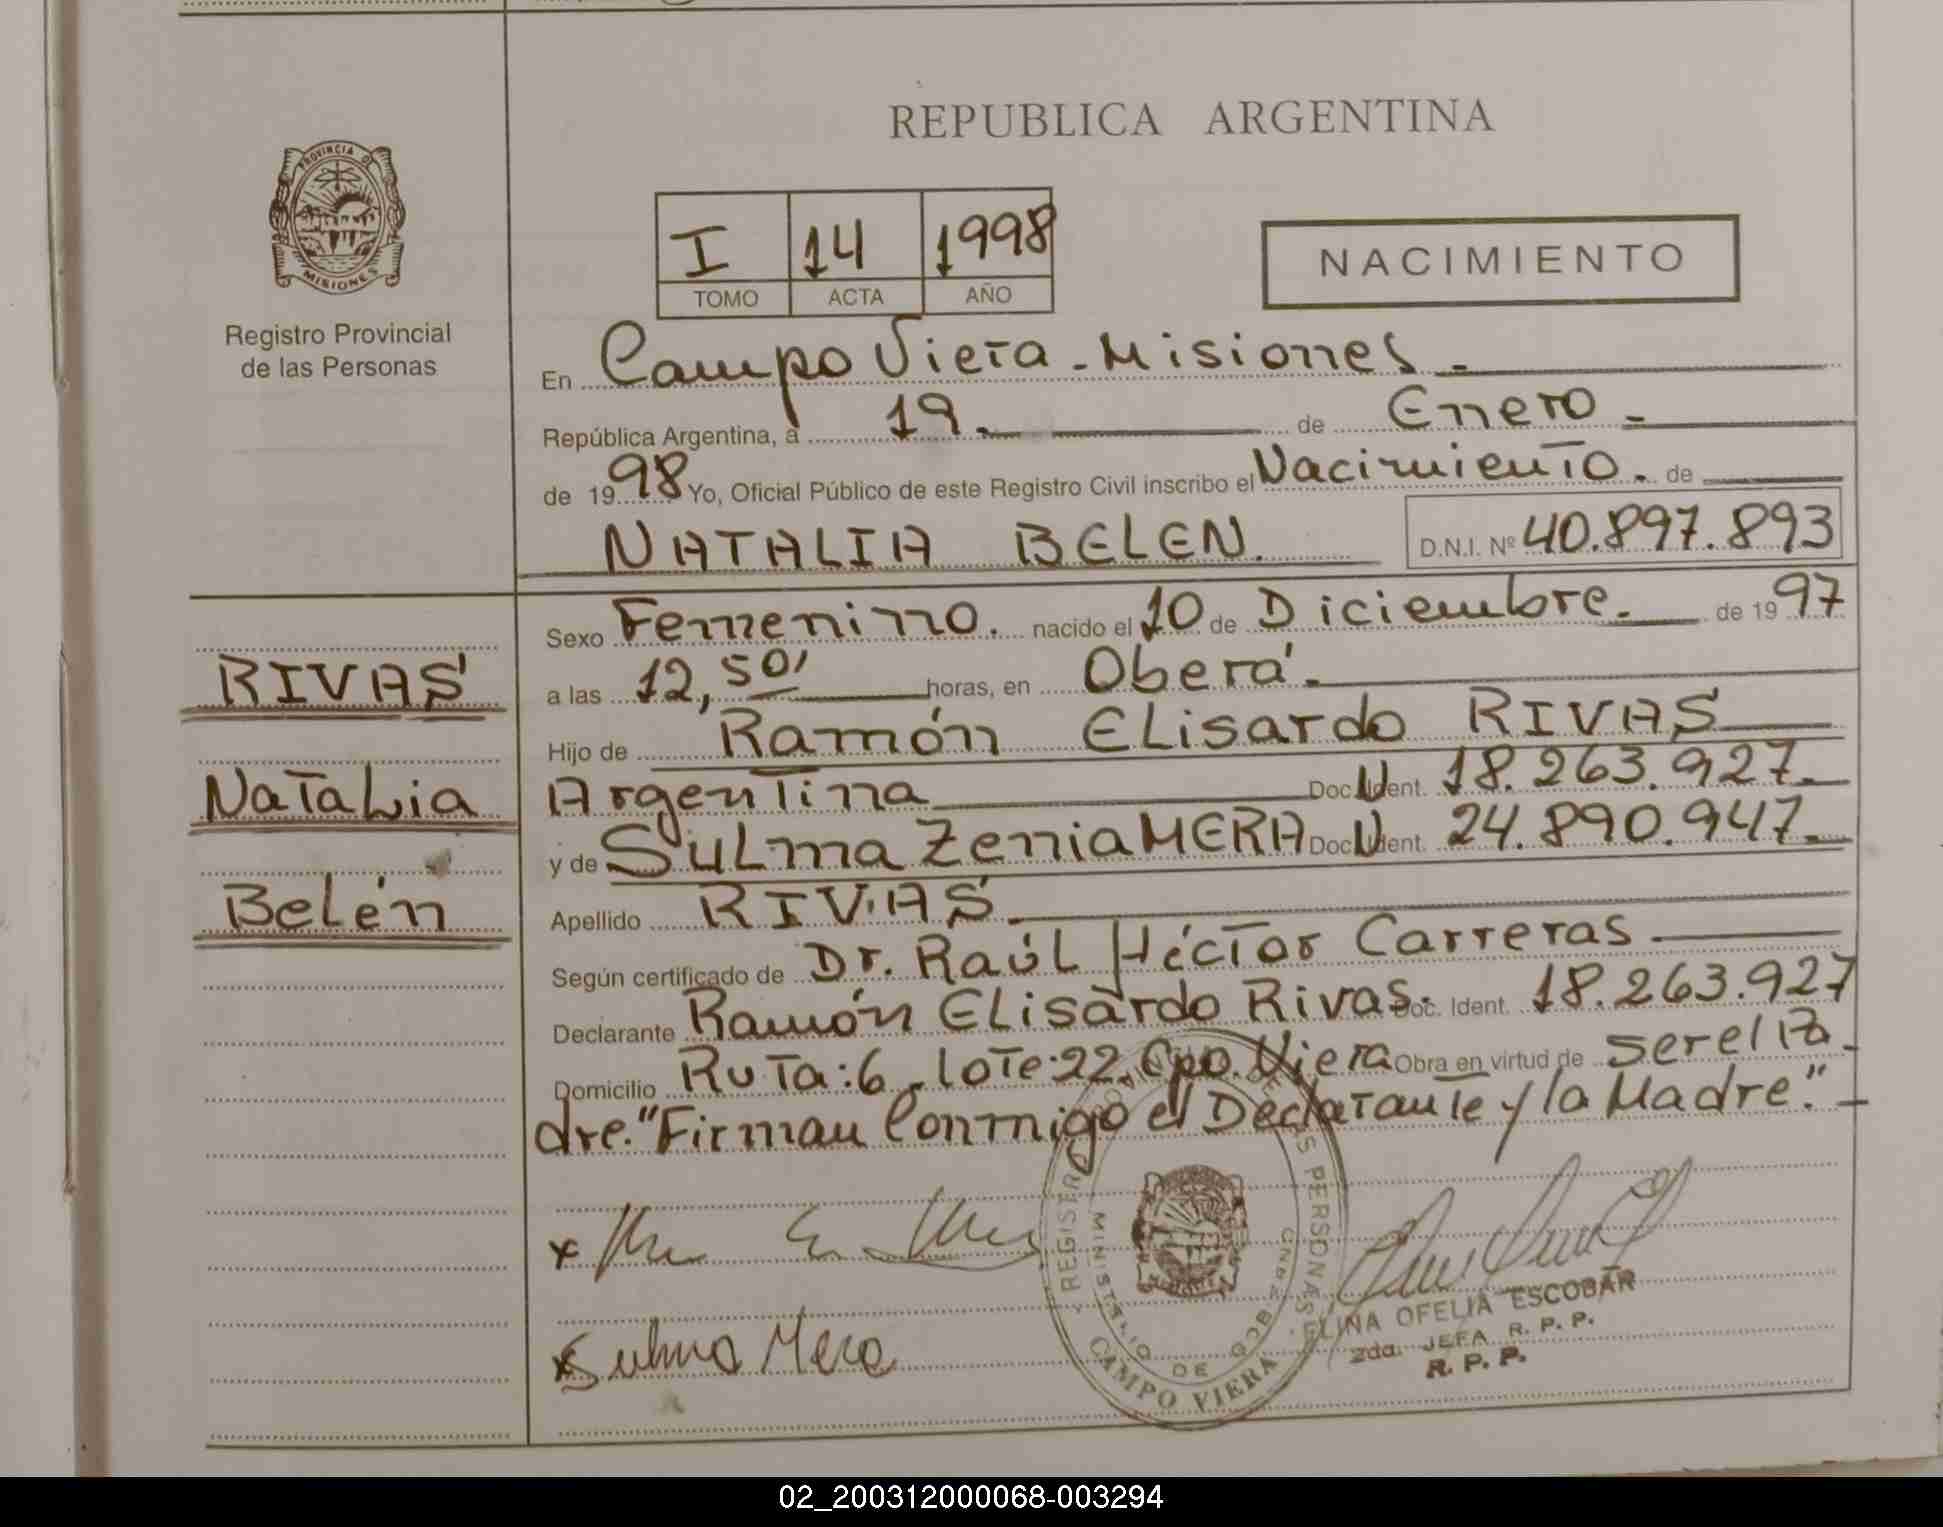 REPUBLICA ARGENTINA
PROVINCIA DE
MISIONES
Registro Provincial
de las Personas
I 14 1998
TOMO ACTA AÑO
NACIMIENTO
En Campo Viera - Misiones -
República Argentina, a 19. de Enero -
de 1998 Yo, Oficial Público de este Registro Civil inscribo el Nacimiento. de
NATALIA BELEN. D.N.I. Nº 40.897.893
RIVAS
Natalia
Belén
Sexo Femenino. nacido el 10 de Diciembre. de 1997
a las 12,50' horas, en Oberá.
Hijo de Ramón Elisardo RIVAS
Argentina Doc. Ident. 18.263.927.
y de Sulma Zenia MERA Doc. Ident. 24.890.947.
Apellido RIVAS
Según certificado de Dr. Raúl Héctor Carreras
Declarante Ramón Elisardo Rivas. Doc. Ident. 18.263.927
Domicilio Ruta:6 - lote:22. Cpo. Viera Obra en virtud de ser el Pa-
dre. "Firman Conmigo el Declarante y la Madre." -
x
x Sulma Mera
REGISTRO PROVINCIAL DE LAS PERSONAS
MINISTERIO DE GOB.
CAMPO VIERA
ELINA OFELIA ESCOBAR
2da. JEFA R. P. P.
R. P. P.
02_200312000068-003294